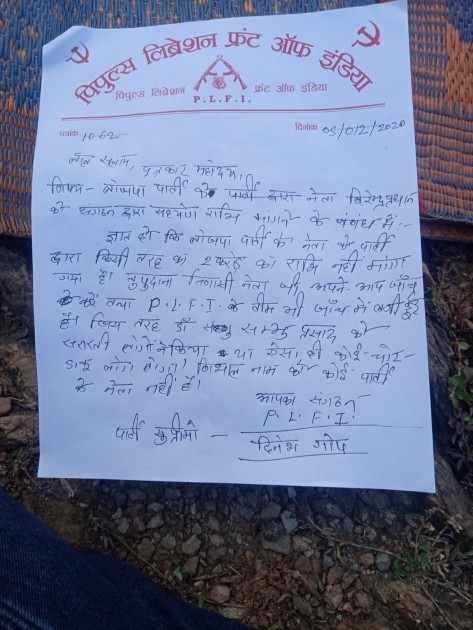 पिपुल्स लिब्रेशन फ्रंट ऑफ इंडिया
पिपुल्स लिब्रेशन फ्रंट ऑफ इंडिया
P.L.F.I.
पत्रांक 1062 दिनांक 05/012/2020
लाल सलाम, पत्रकार महोदय,
विषय - लोजपा पार्टी के पार्टी द्वारा नेता विरेन्द्र प्रधान
को संगठन द्वारा सहयोग राशि मांगने के संबंध में:-
ज्ञात हो कि लोजपा पार्टी के नेता को पार्टी
द्वारा किसी तरह का 2 करोड़ का राशि नहीं मांगा
गया है। तुपुदाना निवासी नेता जी अपने आप जाँच
करें तथा P.L.F.I. के टीम भी जाँच में लगी हुई
है। जिस तरह डॉ सम्भु प्रसाद को
लोगों ने किया था ऐसा ही कोई चोर-
डाकू लोग होगा। नाम को कोई पार्टी
के नेता नहीं है।
आपका संगठन
P.L.F.I.
पार्टी सुप्रीमो - दिनेश गोप